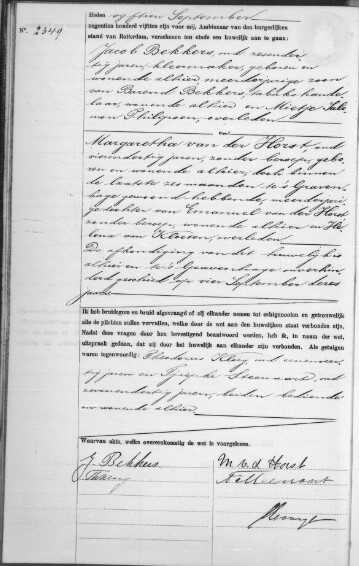 Heden vyftien September
Nº. 2349 negentien honderd vijftien zijn voor mij, Ambtenaar van den burgerlijken
stand van Rotterdam, verschenen ten einde een huwelijk aan te gaan:
Jacob Bekkers, oud
tig jaren, kleermaker, geboren en
wonende alhier, meerderjarige zoon
van Barend Bekkers,
laar, wonende alhier en Mietje
Philipson, overleden
en
Margaretha van der Horst, oud
vierendertig jaren, zonder beroep, gebo-
ren en wonende alhier, doch binnen
de laatste zes maanden te 's Graven-
hage gewoond hebbende, meerderjari-
ge dochter van Emanuel van der Horst
zonder beroep, wonende alhier en He-
lena van Kloeten, overleden.
De afkondiging van dit huwelijk is
alhier en te 's Gravenhage onverhin-
derd geschied op vier September dezes
jaars
Ik heb bruidegom en bruid afgevraagd of zij elkander nemen tot echtgenooten en getrouwelijk
alle de plichten zullen vervullen, welke door de wet aan den huwelijken staat verbonden zijn.
Nadat deze vragen door hen bevestigend beantwoord werden, heb ik, in naam der wet,
uitspraak gedaan, dat zij door het huwelijk aan elkander zijn verbonden. Als getuigen
waren tegenwoordig: Theodorus
tig jaren en
jaren, beiden
en wonende alhier
Waarvan akte, welke overeenkomstig de wet is voorgelezen.
J. Bekkers M v. d. Horst